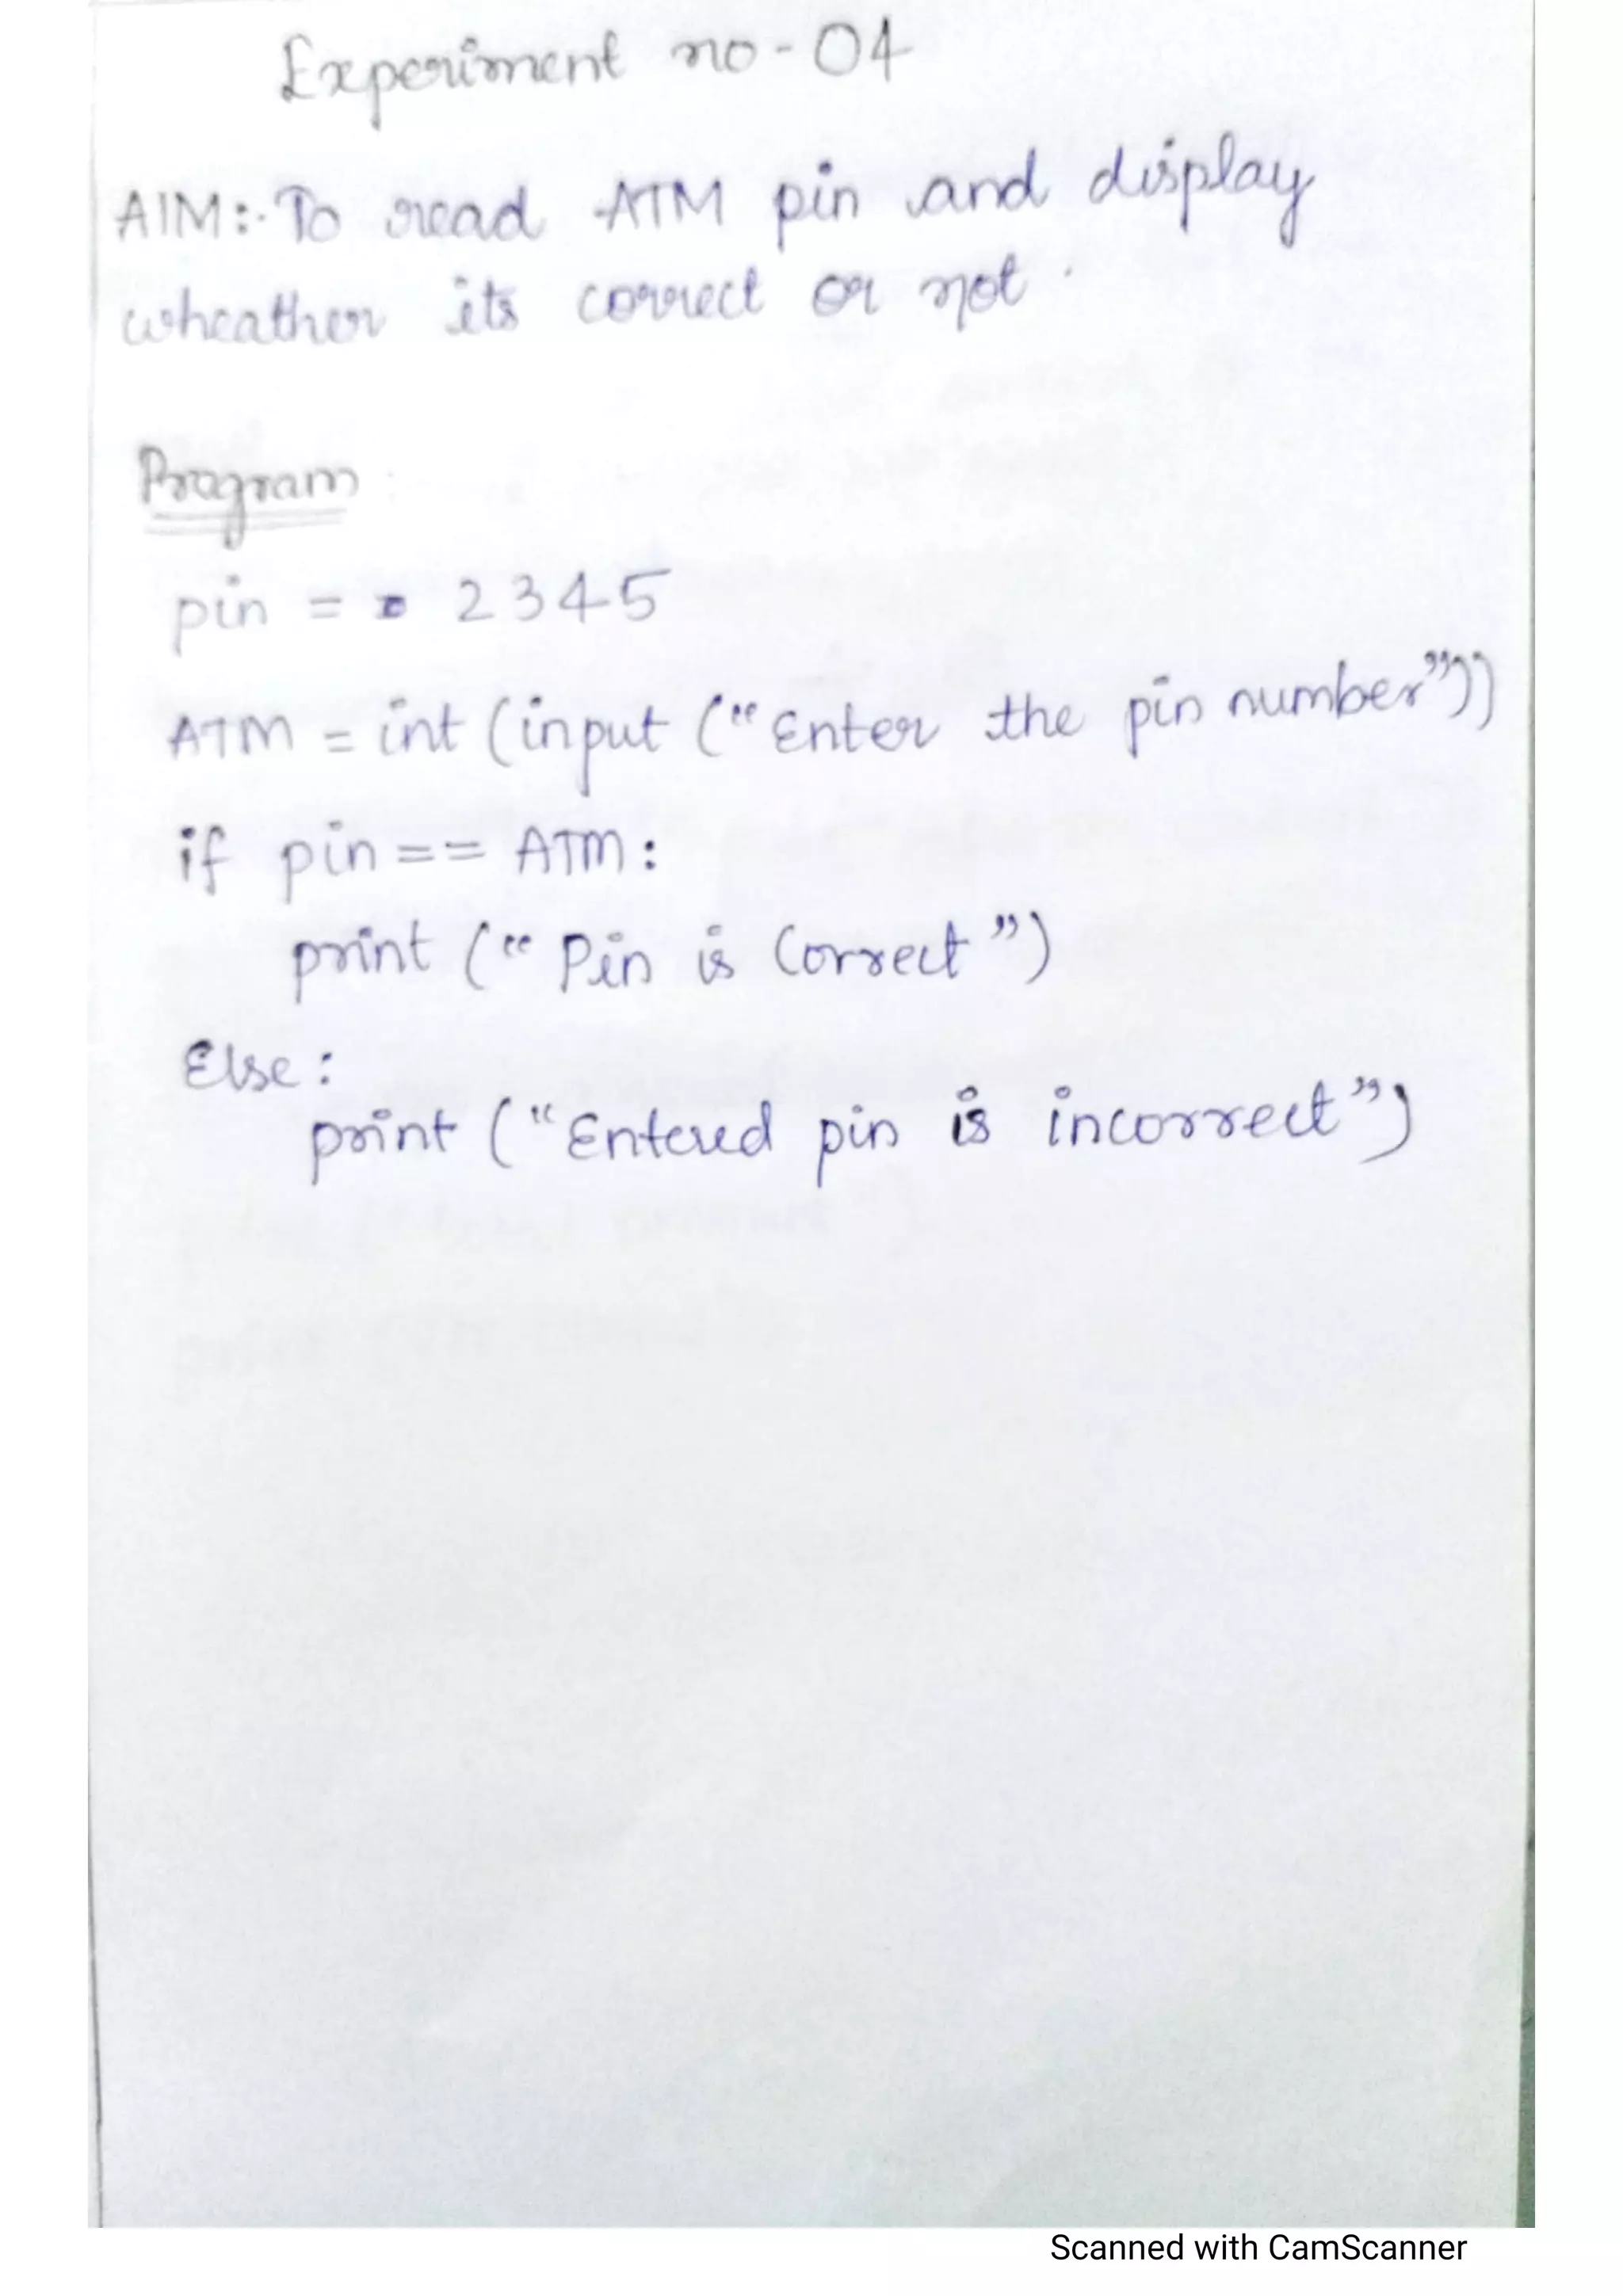 Experiment no-04
AIM:- To read ATM pin and display
wheather its correct or not.
Program
pin = 2345
ATM = int (input ("Enter the pin number"))
if pin == ATM:
print ("Pin is Correct")
Else:
print ("Entered pin is incorrect")
Scanned with CamScanner